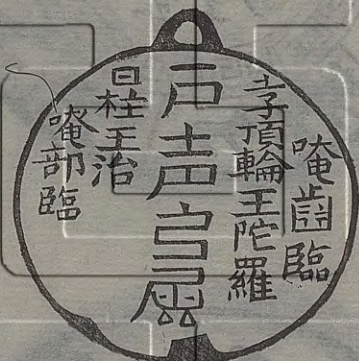 唵齒臨
頂輪王陀羅
戸声
日柱王治
唵部臨